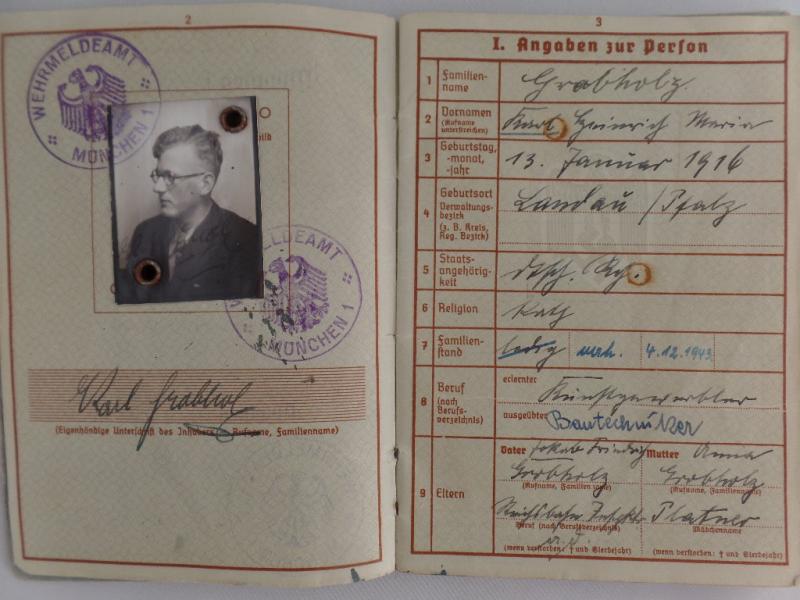 2
WEHRMELDEAMT
MÜNCHEN 1
WEHRMELDEAMT
MÜNCHEN 1
Karl Grabholz
(Eigenhändige Unterschrift des Inhabers – Rufname, Familienname)
3
I. Angaben zur Person
1 Familien-
name
Grabholz
2 Vornamen
(Rufname
unterstreichen)
Karl Heinrich Maria
3 Geburtstag,
-monat,
-jahr
13. Januar 1916
4 Geburtsort
Verwaltungs-
bezirk
(z. B. Kreis,
Reg. Bezirk)
Landau / Pfalz
5 Staats-
angehörig-
keit
dtsch. Rg.
6 Religion
kath
7 Familien-
stand
ledig verh. 4.12.1943
8 Beruf
(nach
Berufs-
verzeichnis)
erlernter
Kunstgewerbler
ausgeübter
Bautechniker
9 Eltern
Vater Jakob Friedrich
Grabholz
(Rufname, Familienname)
Reichsbahn Inspektor
Beruf (nach Berufsverzeichnis)
i. P.
(wenn verstorben: † und Sterbejahr)
Mutter Anna
Grabholz
(Rufname, Familienname)
Platner
Mädchenname
(wenn verstorben: † und Sterbejahr)